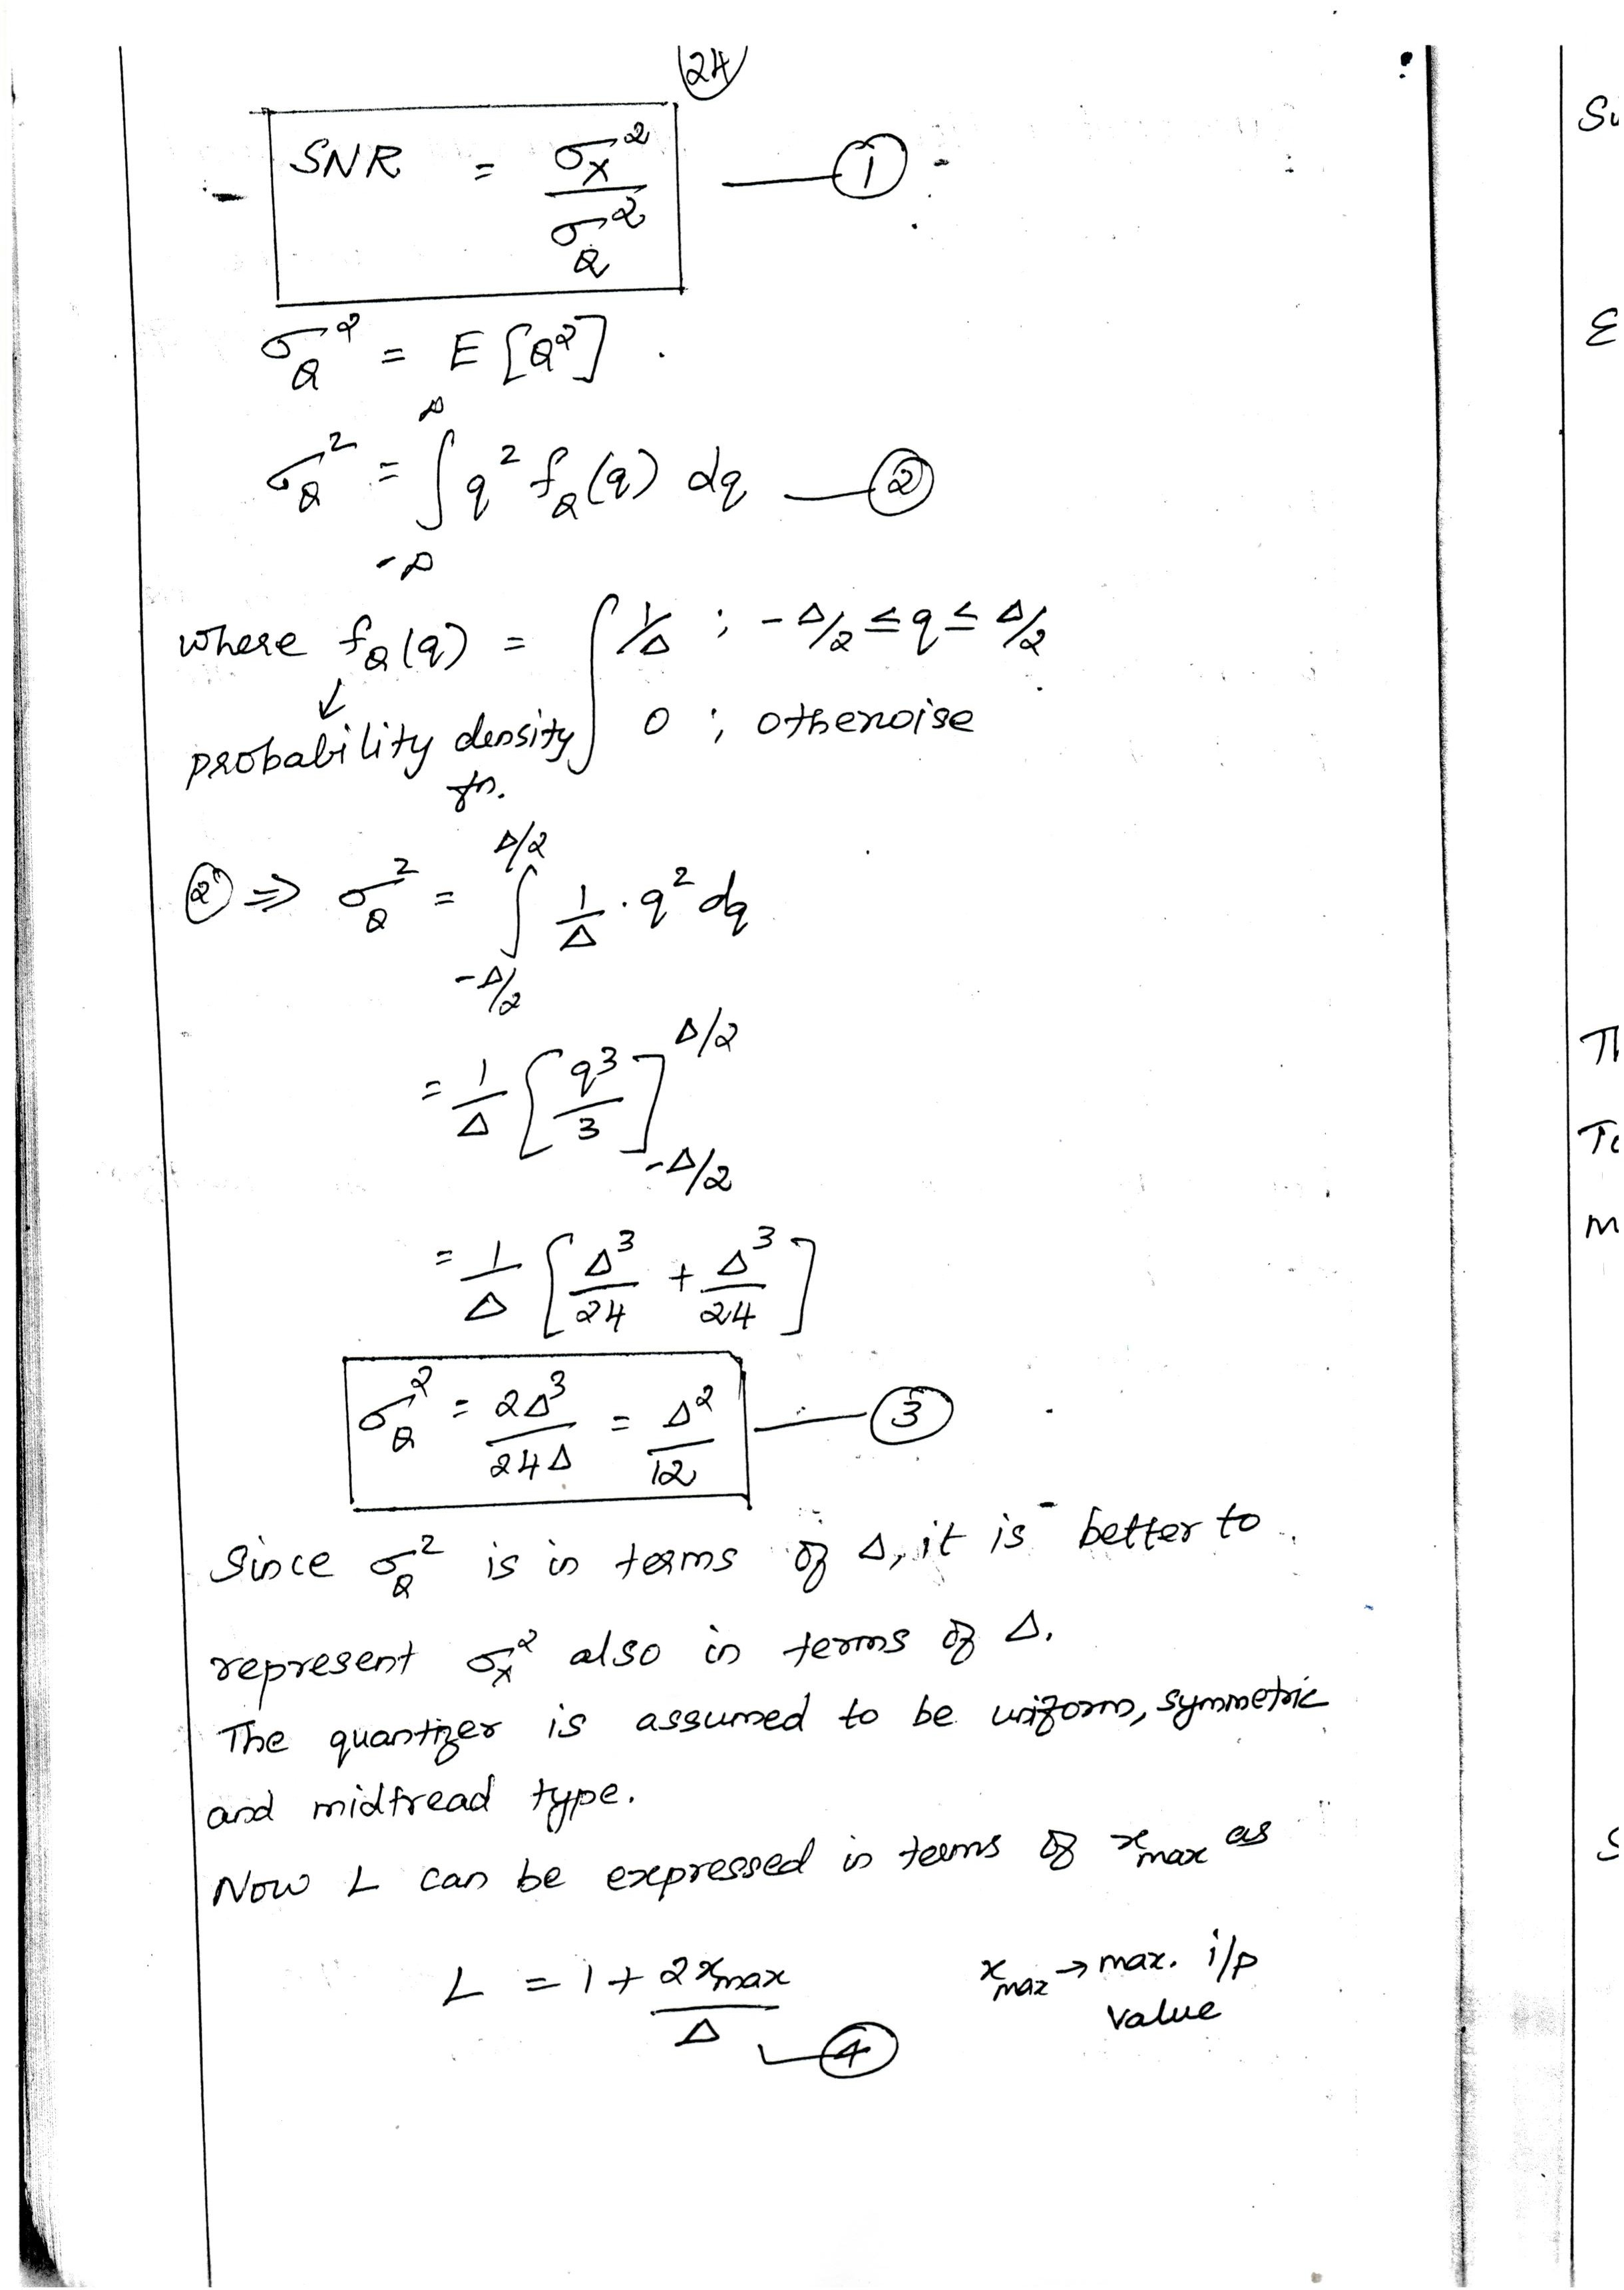 24
SNR = σ_X² / σ_Q² — ①
σ_Q² = E[Q²].
σ_Q² = ∫_{-∞}^{∞} q² f_Q(q) dq — ②
where f_Q(q) = { 1/Δ ; -Δ/2 ≤ q ≤ Δ/2
probability density fn. 0 ; otherwise
② ⇒ σ_Q² = ∫_{-Δ/2}^{Δ/2} 1/Δ · q² dq
= 1/Δ [q³/3]_{-Δ/2}^{Δ/2}
= 1/Δ [Δ³/24 + Δ³/24]
σ_Q² = 2Δ³/24Δ = Δ²/12 — ③
Since σ_Q² is in terms of Δ, it is better to
represent σ_X² also in terms of Δ.
The quantizer is assumed to be uniform, symmetric
and midtread type.
Now L can be expressed in terms of x_max as
L = 1 + 2x_max/Δ — ④
x_max → max. i/p
value
E
Th
To
m